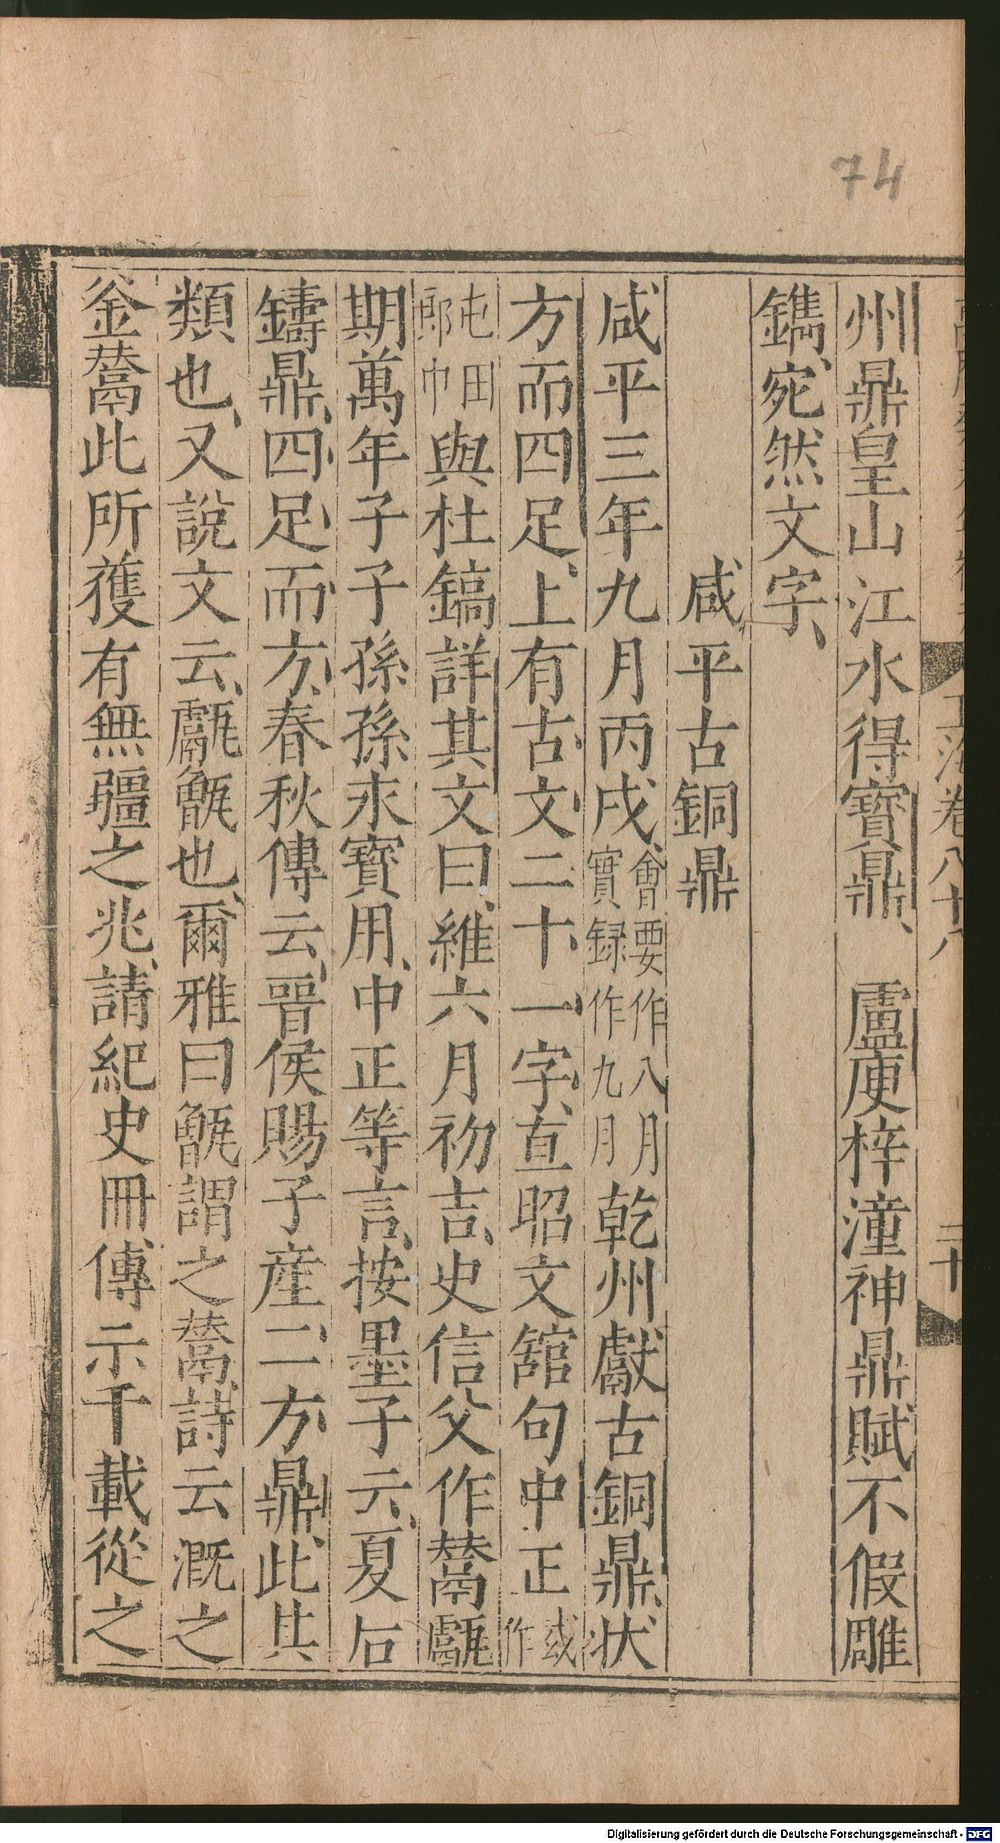 74
玉海卷八十八
二十
州鼎皇山江水得寶鼎、盧庾梓潼神鼎賦不假雕
鐫、宛然文字、
咸平古銅鼎
咸平三年九月丙戌、會要作八月實録作九月乾州獻古銅鼎、狀
方而四足、上有古文二十一字、直昭文舘句中正或作
屯田郎中與杜鎬詳其文曰、維六月初吉、史信父作鬵甗
期萬年子子孫孫永寶用、中正等言、按墨子云、夏后
鑄鼎、四足、而方、春秋傳云、晉侯賜子産二方鼎、此其
類也、又說文云、甗甑也、爾雅曰甑謂之鬵、詩云溉之
釡鬵此所獲有無疆之兆、請紀史冊、傳示千載從之
Digitalisierung gefördert durch die Deutsche Forschungsgemeinschaft - DFG